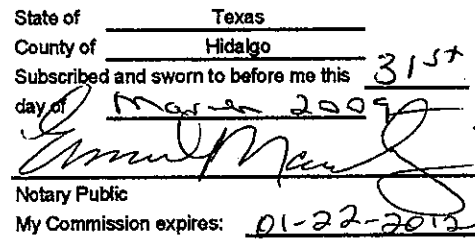 State of Texas
County of Hidalgo
Subscribed and sworn to before me this 31st
day of March 2009
Notary Public
My Commission expires: 01-22-2012